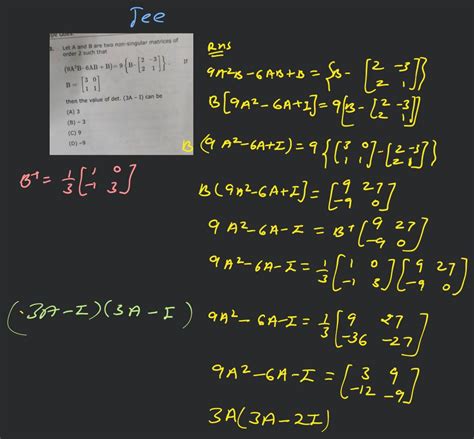 Jee
Let A and B are two non-singular matrices of
order 2 such that
(9A²B- 6AB + B) = 9 { B - [2 -3; 2 1] } . If
B = [3 0; 1 1]
then the value of det. (3A – I) can be
(A) 3
(B) – 3
(C) 9
(D) –9
B⁻¹ = 1/3 [1 0; -1 3]
(3A - I)(3A - I)
Ans
9A²B - 6AB + B = { B - [2 -3; 2 1] }
B[9A² - 6A + I] = 9[B - [2 -3; 2 1]]
B (9A² - 6A + I) 9 { [3 0; 1 1] - [2 -3; 2 1] }
B(9A² - 6A + I] = [9 27; -9 0]
9A² - 6A - I = B⁻¹ [9 27; -9 0]
9A² - 6A - I = 1/3 [1 0; -1 3] [9 27; -9 0]
9A² - 6A - I = 1/3 [9 27; -36 -27]
9A² - 6A - I = [3 9; -12 -9]
3A(3A - 2I)